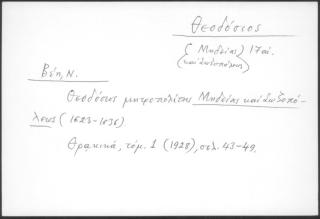 Θεοδόσιος
(Μηδείας) 17 αἰ.
(καὶ Σωζοπόλεως)
Βέη, Ν.
Θεοδόσιος μητροπολίτης Μηδείας καὶ Σωζοπό-
λεως (1623-1636)
Θρακικά, τόμ. 1 (1928), σελ. 43-49.